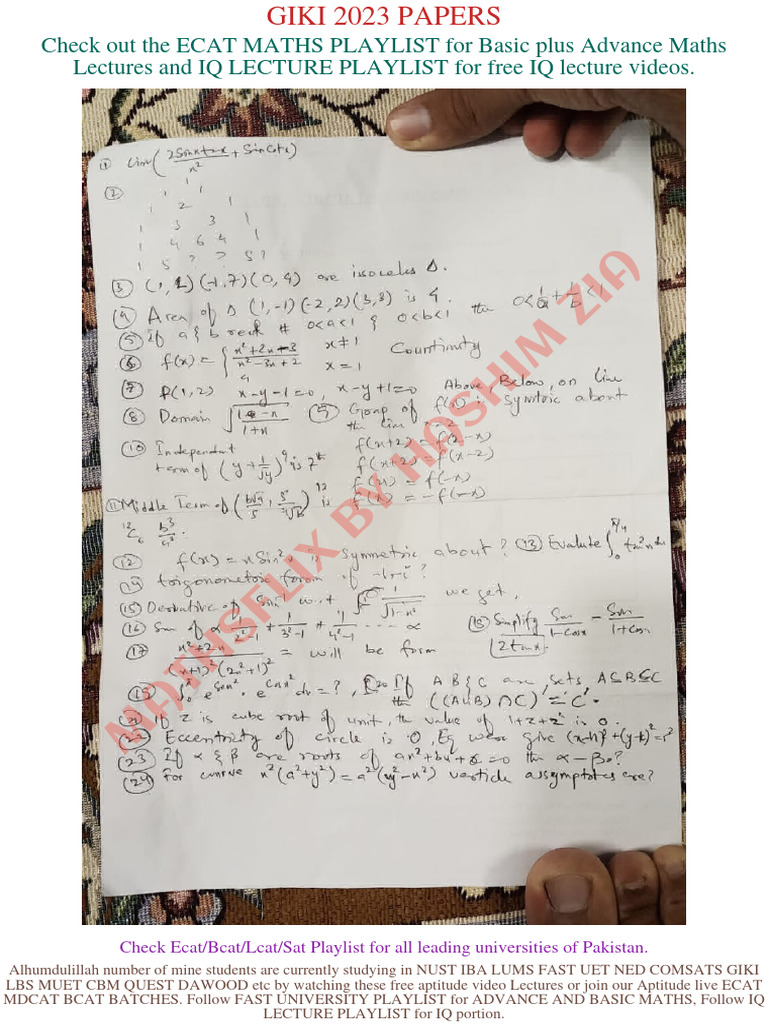 GIKI 2023 PAPERS
Check out the ECAT MATHS PLAYLIST for Basic plus Advance Maths
Lectures and IQ LECTURE PLAYLIST for free IQ lecture videos.
① Lim( 2Sinx+ x / x² + Sin x)
②
1
1 1
1 2 1
1 3 3 1
1 4 6 4 1
1 5 ? ? 5 ?
③ (1,1)(-1,7)(0,4) are isoceles Δ.
④ Area of Δ (1,-1)(-2,2)(3,3) is 4.
⑤ if a & b real # 0<a<1 & 0<b<1 the 0<1/a+1/b<1
⑥ f(x) = { x²+2x-3 / x²-3x+2 x≠1
4 x=1 Countinuity
⑦ P(1,2) x-y-1=0, x-y+1=0 Above, Below, on line
⑧ Domain √(1-x / 1+x) ⑨ f(x) is symtric about
the line x=2
f(x+2) = f(2-x)
f(x+2) = f(x-2)
f(x) = f(-x)
f(x) = -f(-x)
⑩ Independent
term of (y + 1/√y)⁹ is 7th
⑪ Middle Term of ( )¹² is
¹²C₆ b³/a³.
⑫ f(x) = xSin² is Symmetric about? ⑬ Evalute ∫₀^π/4 tan²x dx
⑭ trigonometric form of -1+i?
⑮ Derivative of Sin⁻¹ w.r.t 1/√1-x² we get,
⑯ Sum of 1/2²-1 + 1/3²-1 + 1/4²-1 .... ∝
⑰ x²+2x / (x+1)²(2x²+1)² = will be form
⑱ Simplify Sinx/1-cosx - Sinx/1+cosx
2tanx
⑲ ∫₀ e^Sinx² · e^Cosx² dx = ?, ⑳ If A B & C are sets A⊆B⊆C
the ((A∪B)∩C)' = C'.
㉑ If z is cube root of unit, the value of 1+z+z² is 0.
㉒ Eccentricity of circle is 0, Eq were give (x-h)²+(y-k)²=r²
㉓ If α & β are roots of ax²+bx+c=0 the α-β=?
㉔ For curve x²(a²+y²)=a²(y²-x²) verticle assymptotes are?
MATHSFLIX BY HOSHIM ZIA
Check Ecat/Bcat/Lcat/Sat Playlist for all leading universities of Pakistan.
Alhumdulillah number of mine students are currently studying in NUST IBA LUMS FAST UET NED COMSATS GIKI
LBS MUET CBM QUEST DAWOOD etc by watching these free aptitude video Lectures or join our Aptitude live ECAT
MDCAT BCAT BATCHES. Follow FAST UNIVERSITY PLAYLIST for ADVANCE AND BASIC MATHS, Follow IQ
LECTURE PLAYLIST for IQ portion.